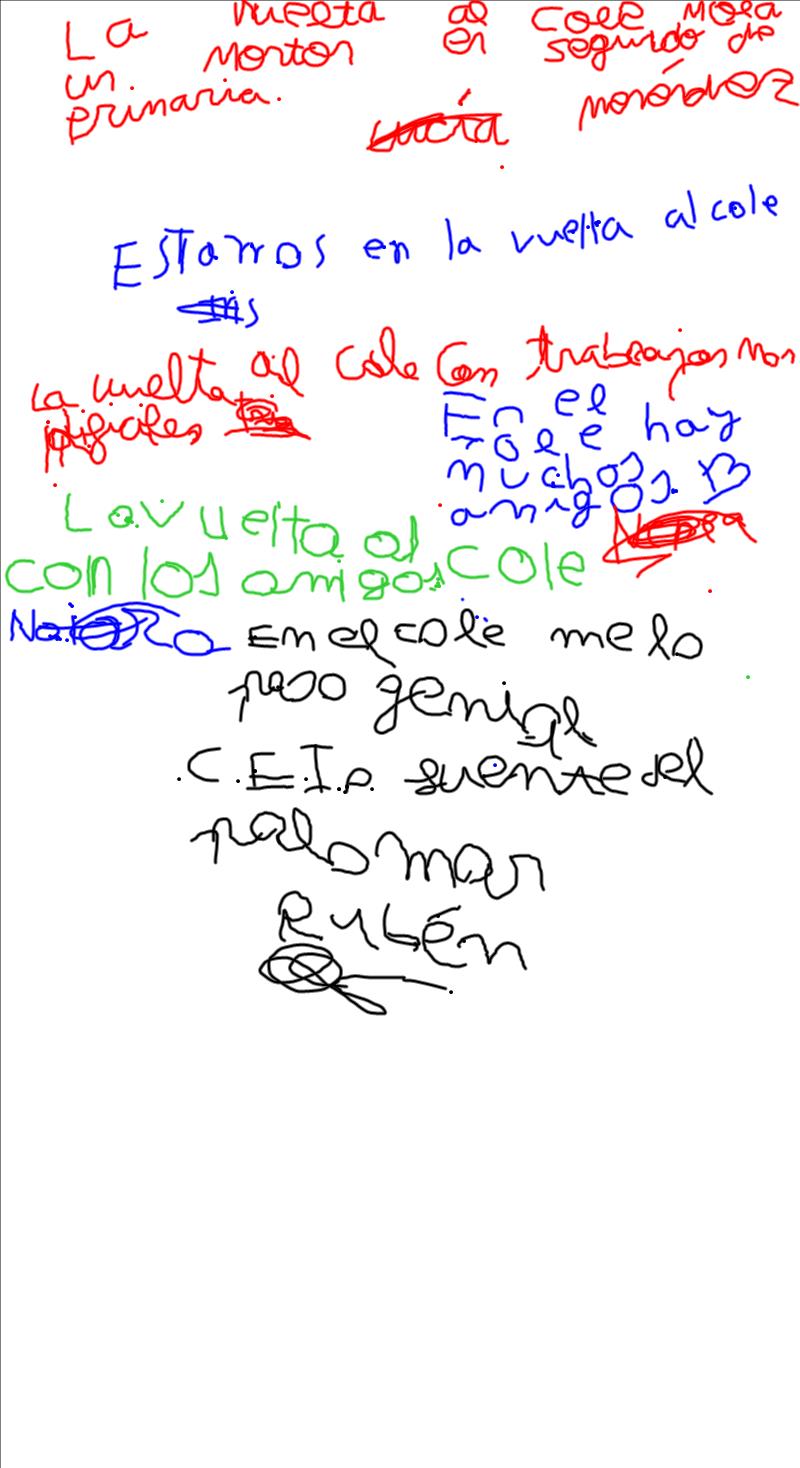 La vuelta al cole mola
un morton en segundo de
primaria.
Lucía
Estamos en la vuelta al cole
La vuelta al cole con
En el
cole hay
muchos
amigos.
La vuelta al cole
con los amigos
En el cole me lo
paso genial
C.E.I.P. fuente del
palomar
Rubén